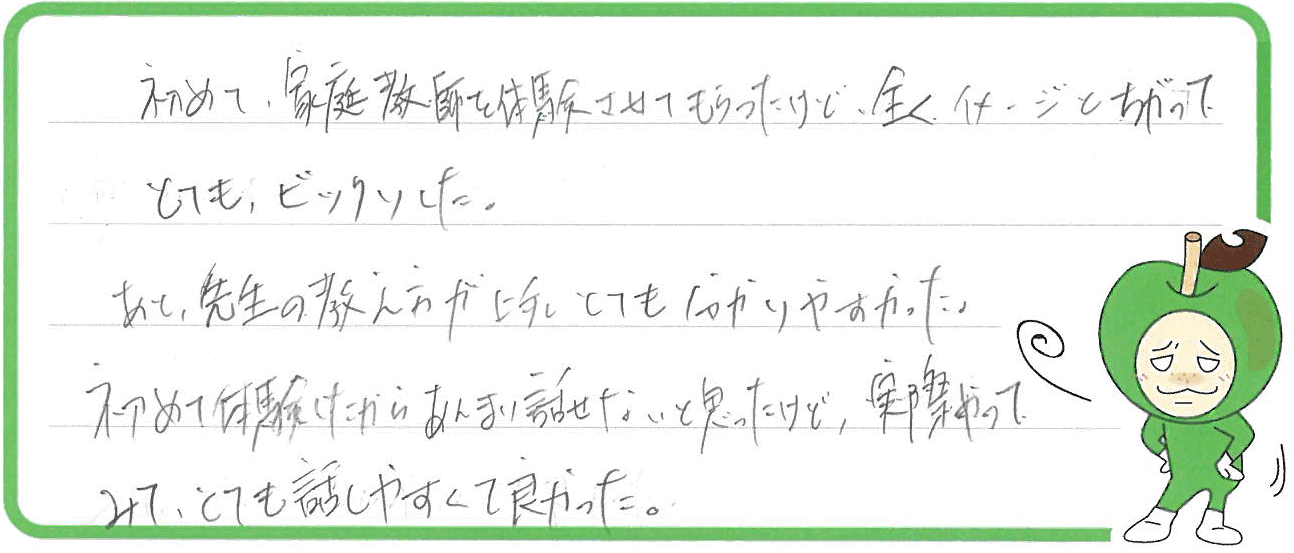 初めて、家庭教師を体験させてもらったけど、全くイメージとちがって
とても、ビックリした。
あと、先生の教え方が上手しとても分かりやすかった。
初めて体験したからあんまり話せないと思ったけど、実際やって
みて、とても話しやすくて良かった。